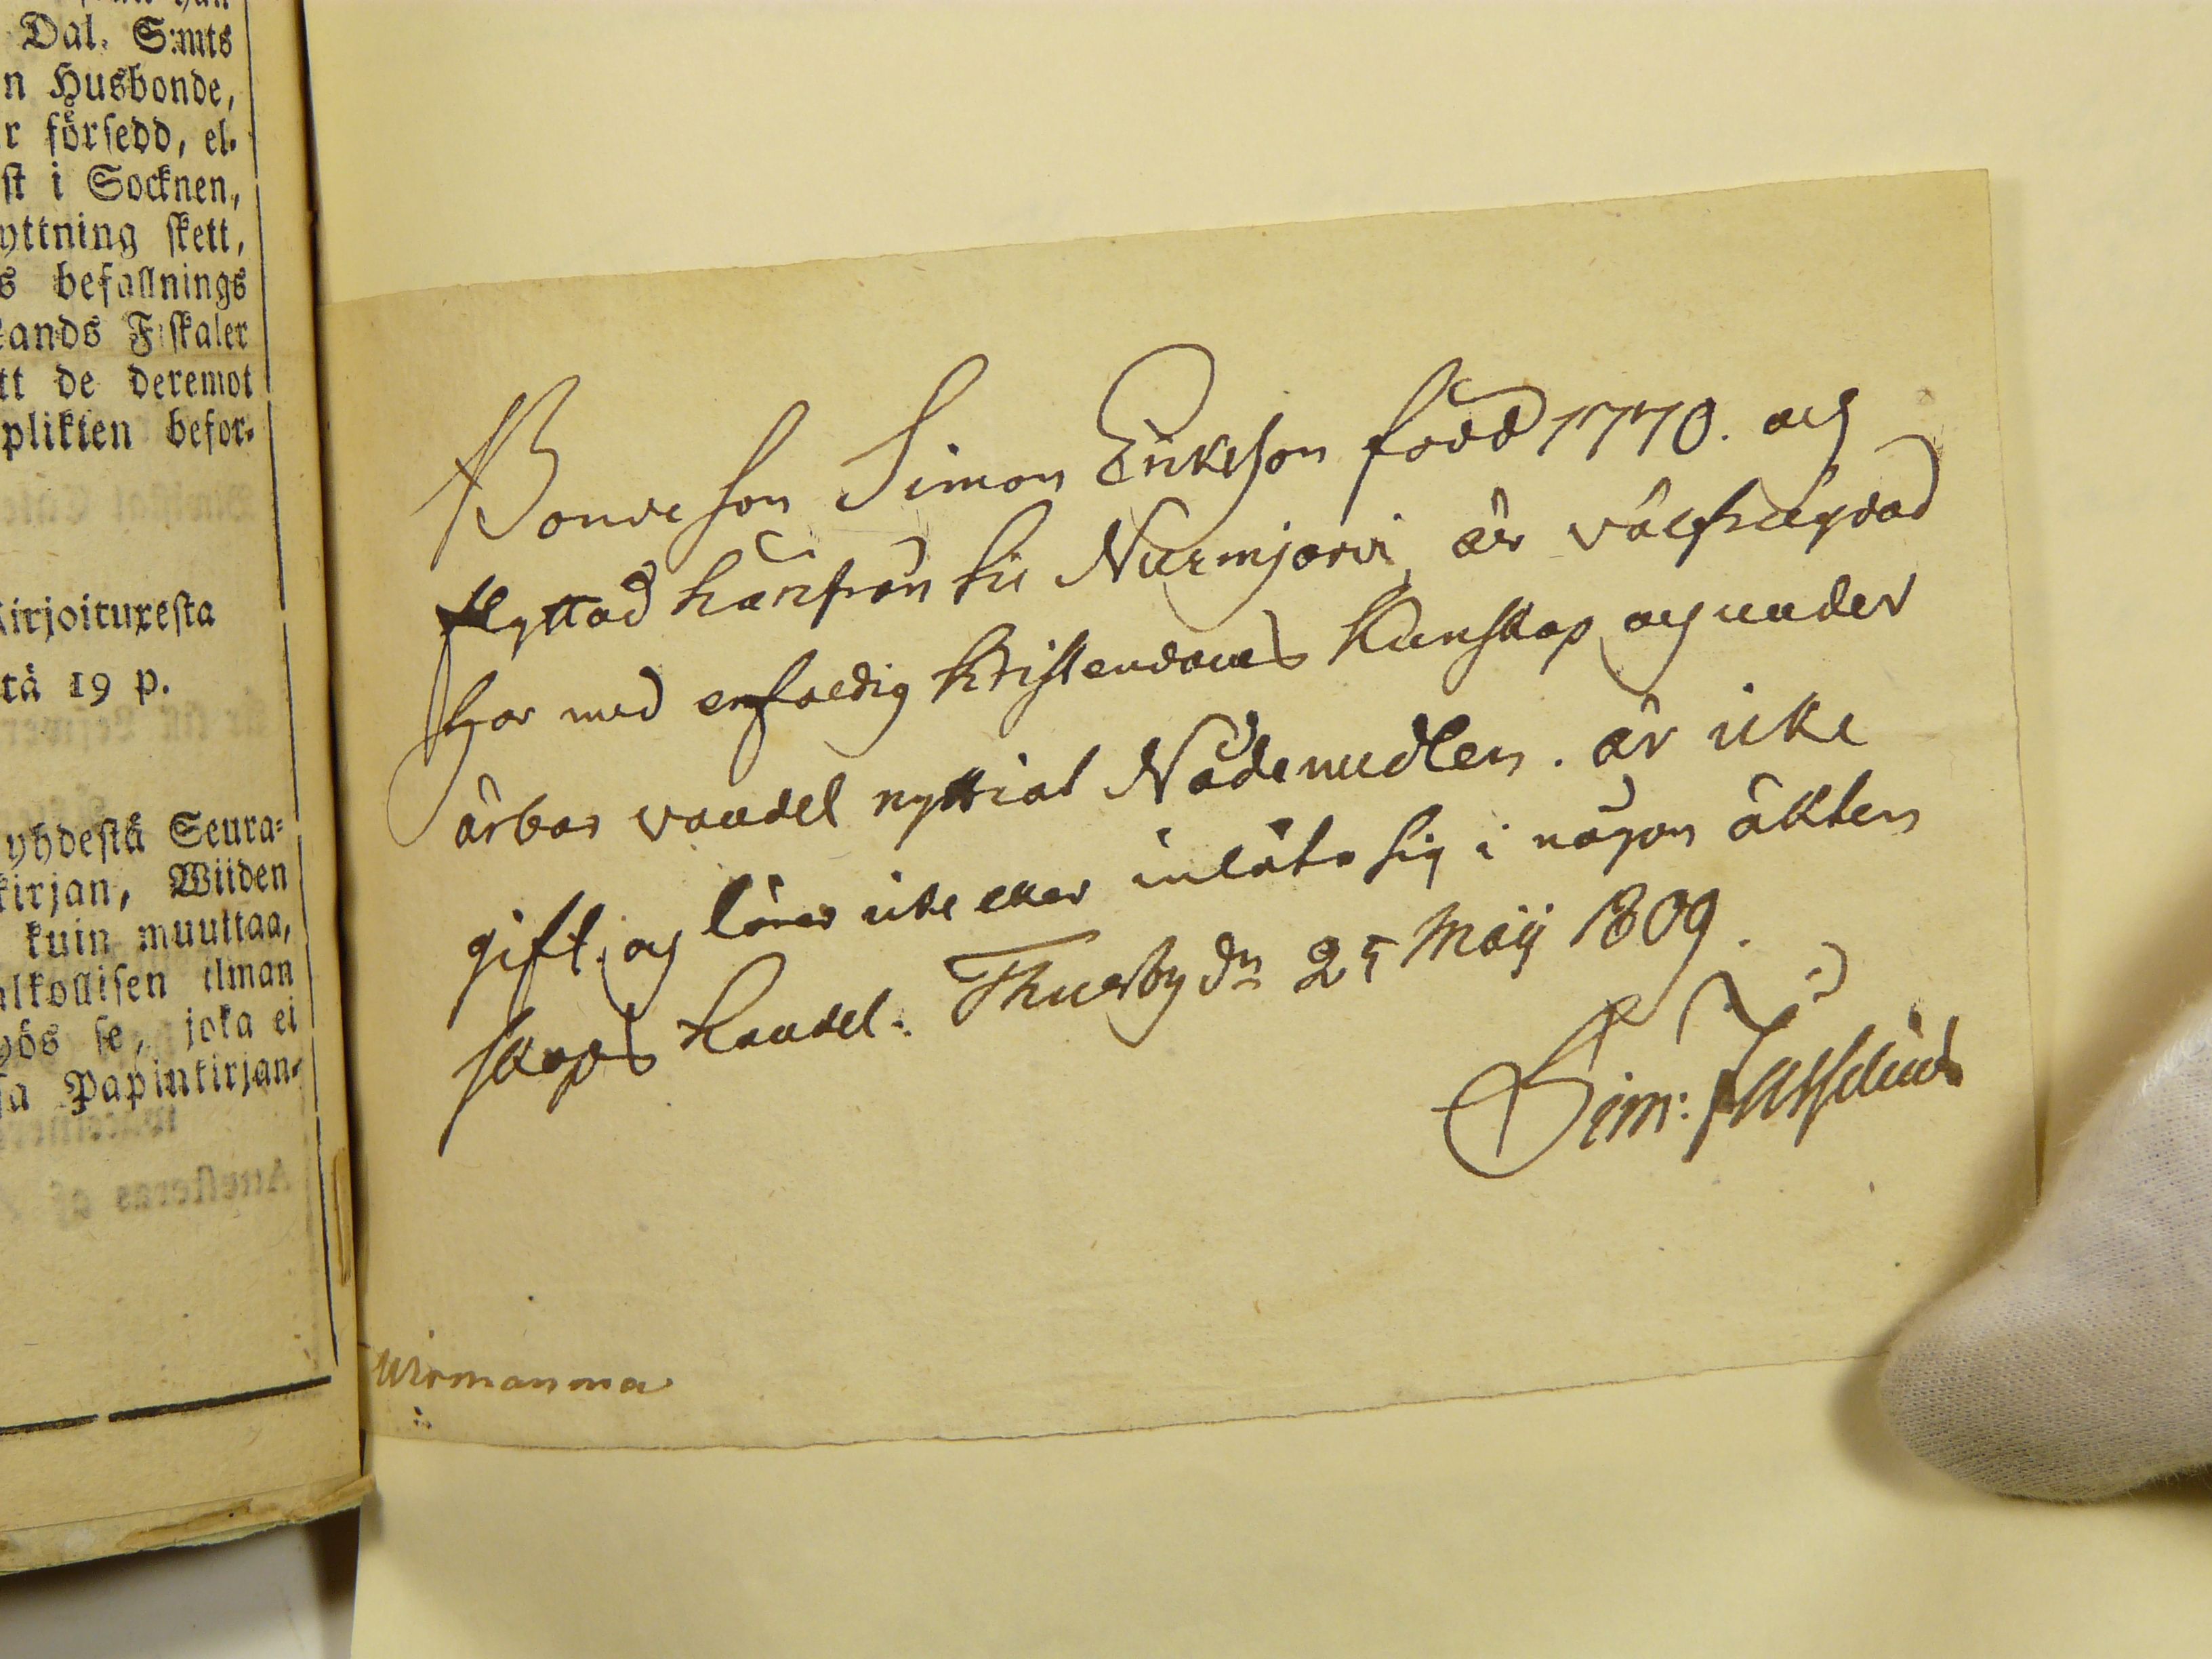 Dal. S:mts
n Husbonde,
r försedd, el-
st i Socknen,
yttning skett,
s befallnings
ands Fiskaler
tt de deremot
plikten befor-
irjoituxesta
tä 19 p.
yhdestä Seura-
kirjan, Wiiden
kuin muuttaa,
lkollisen ilman
yös se, joka ei
sa Papinkirjan-
Bonde son Simon Erikeson född 1770. och
flyttad härifrån til Nurmjärvi, är välfrägdad
har med enfaldig kristendoms kunskap, och under
ärbar vandel nyttiat Nådemedlen. är icke
gift, och lärer icke eller inlåta sig i någon äkten
skaps handel. Thusby dn 25 Maij 1809.
Sim:
Wirmanma